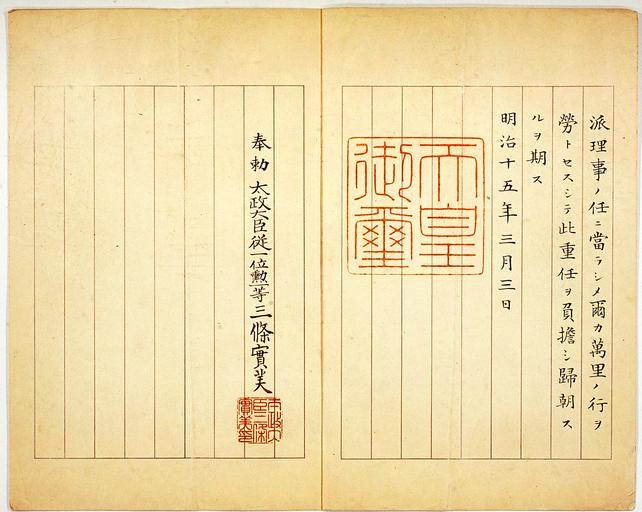 派理事ノ任ニ當ラシメ爾カ萬里ノ行ヲ
勞トセスシテ此重任ヲ負擔シ歸朝ス
ルヲ期ス
明治十五年三月三日
天皇
御璽
奉勅 太政大臣從一位勲一等三條實美
太政大
臣三條
實美印